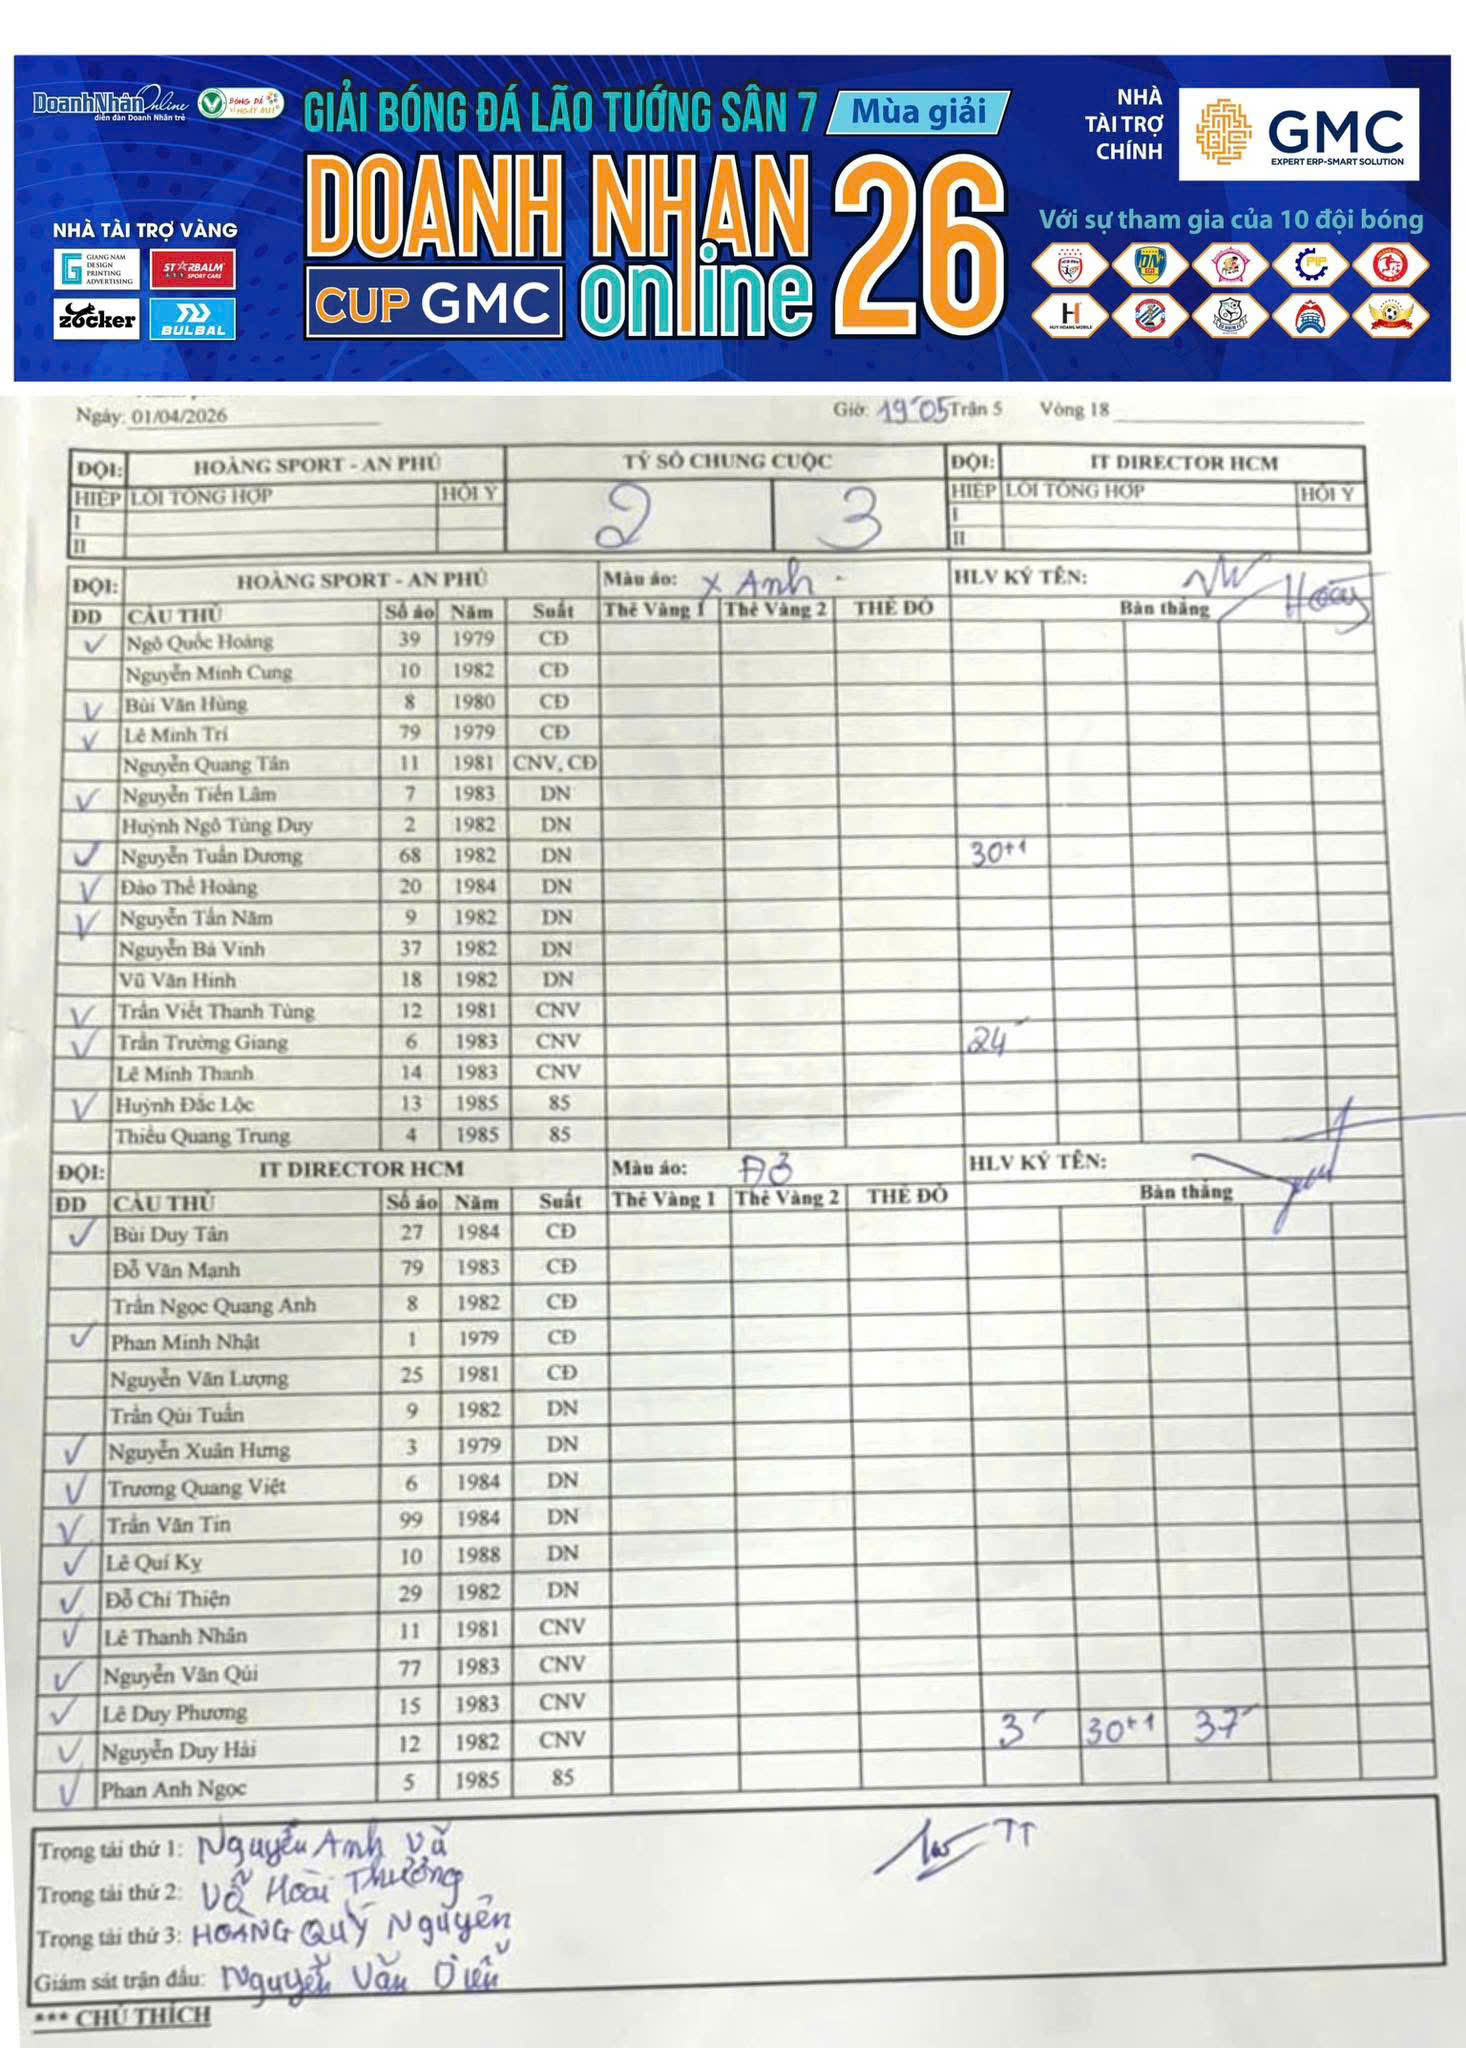 DoanhNhânOnline
diễn đàn Doanh Nhân trẻ
BÓNG ĐÁ
GIẢI BÓNG ĐÁ LÃO TƯỚNG SÂN 7 Mùa giải
DOANH NHAN
online 26
CUP GMC
NHÀ
TÀI TRỢ
CHÍNH
GMC
EXPERT ERP-SMART SOLUTION
NHÀ TÀI TRỢ VÀNG
GIANG NAM
DESIGN
PRINTING
ADVERTISING
STARBALM
SPORT CARE
zocker
BULBAL
Với sự tham gia của 10 đội bóng
PIP
HUY HOANG MOBILE
Ngày: 01/04/2026 Giờ: 19'05 Trận 5 Vòng 18
ĐỘI: HOÀNG SPORT - AN PHÚ TỶ SỐ CHUNG CUỘC ĐỘI: IT DIRECTOR HCM
HIỆP LỖI TỔNG HỢP HỘI Ý 2 3 HIỆP LỖI TỔNG HỢP HỘI Ý
I I
II II
ĐỘI: HOÀNG SPORT - AN PHÚ Màu áo: X Anh HLV KÝ TÊN:
ĐD CẦU THỦ Số áo Năm Suất Thẻ Vàng 1 Thẻ Vàng 2 THẺ ĐỎ Bàn thắng
Ngô Quốc Hoàng 39 1979 CĐ
Nguyễn Minh Cung 10 1982 CĐ
Bùi Văn Hùng 8 1980 CĐ
Lê Minh Trí 79 1979 CĐ
Nguyễn Quang Tân 11 1981 CNV, CĐ
Nguyễn Tiến Lâm 7 1983 DN
Huỳnh Ngô Tùng Duy 2 1982 DN
Nguyễn Tuấn Dương 68 1982 DN 30+1
Đào Thế Hoàng 20 1984 DN
Nguyễn Tấn Năm 9 1982 DN
Nguyễn Bá Vinh 37 1982 DN
Vũ Văn Hinh 18 1982 DN
Trần Viết Thanh Tùng 12 1981 CNV
Trần Trường Giang 6 1983 CNV 24'
Lê Minh Thanh 14 1983 CNV
Huỳnh Đắc Lộc 13 1985 85
Thiều Quang Trung 4 1985 85
ĐỘI: IT DIRECTOR HCM Màu áo: ĐỎ HLV KÝ TÊN:
ĐD CẦU THỦ Số áo Năm Suất Thẻ Vàng 1 Thẻ Vàng 2 THẺ ĐỎ Bàn thắng
Bùi Duy Tân 27 1984 CĐ
Đỗ Văn Mạnh 79 1983 CĐ
Trần Ngọc Quang Anh 8 1982 CĐ
Phan Minh Nhật 1 1979 CĐ
Nguyễn Văn Lượng 25 1981 CĐ
Trần Qúi Tuấn 9 1982 DN
Nguyễn Xuân Hưng 3 1979 DN
Trương Quang Việt 6 1984 DN
Trần Văn Tin 99 1984 DN
Lê Quí Kỵ 10 1988 DN
Đỗ Chí Thiện 29 1982 DN
Lê Thanh Nhân 11 1981 CNV
Nguyễn Văn Qúi 77 1983 CNV
Lê Duy Phương 15 1983 CNV
Nguyễn Duy Hải 12 1982 CNV 3' 30+1 37'
Phan Anh Ngọc 5 1985 85
Trọng tài thứ 1: Nguyễn Anh Vũ TT
Trọng tài thứ 2: Võ Hoài Thương
Trọng tài thứ 3: HOÀNG QUÝ Nguyên
Giám sát trận đấu: Nguyễn Văn
*** CHÚ THÍCH